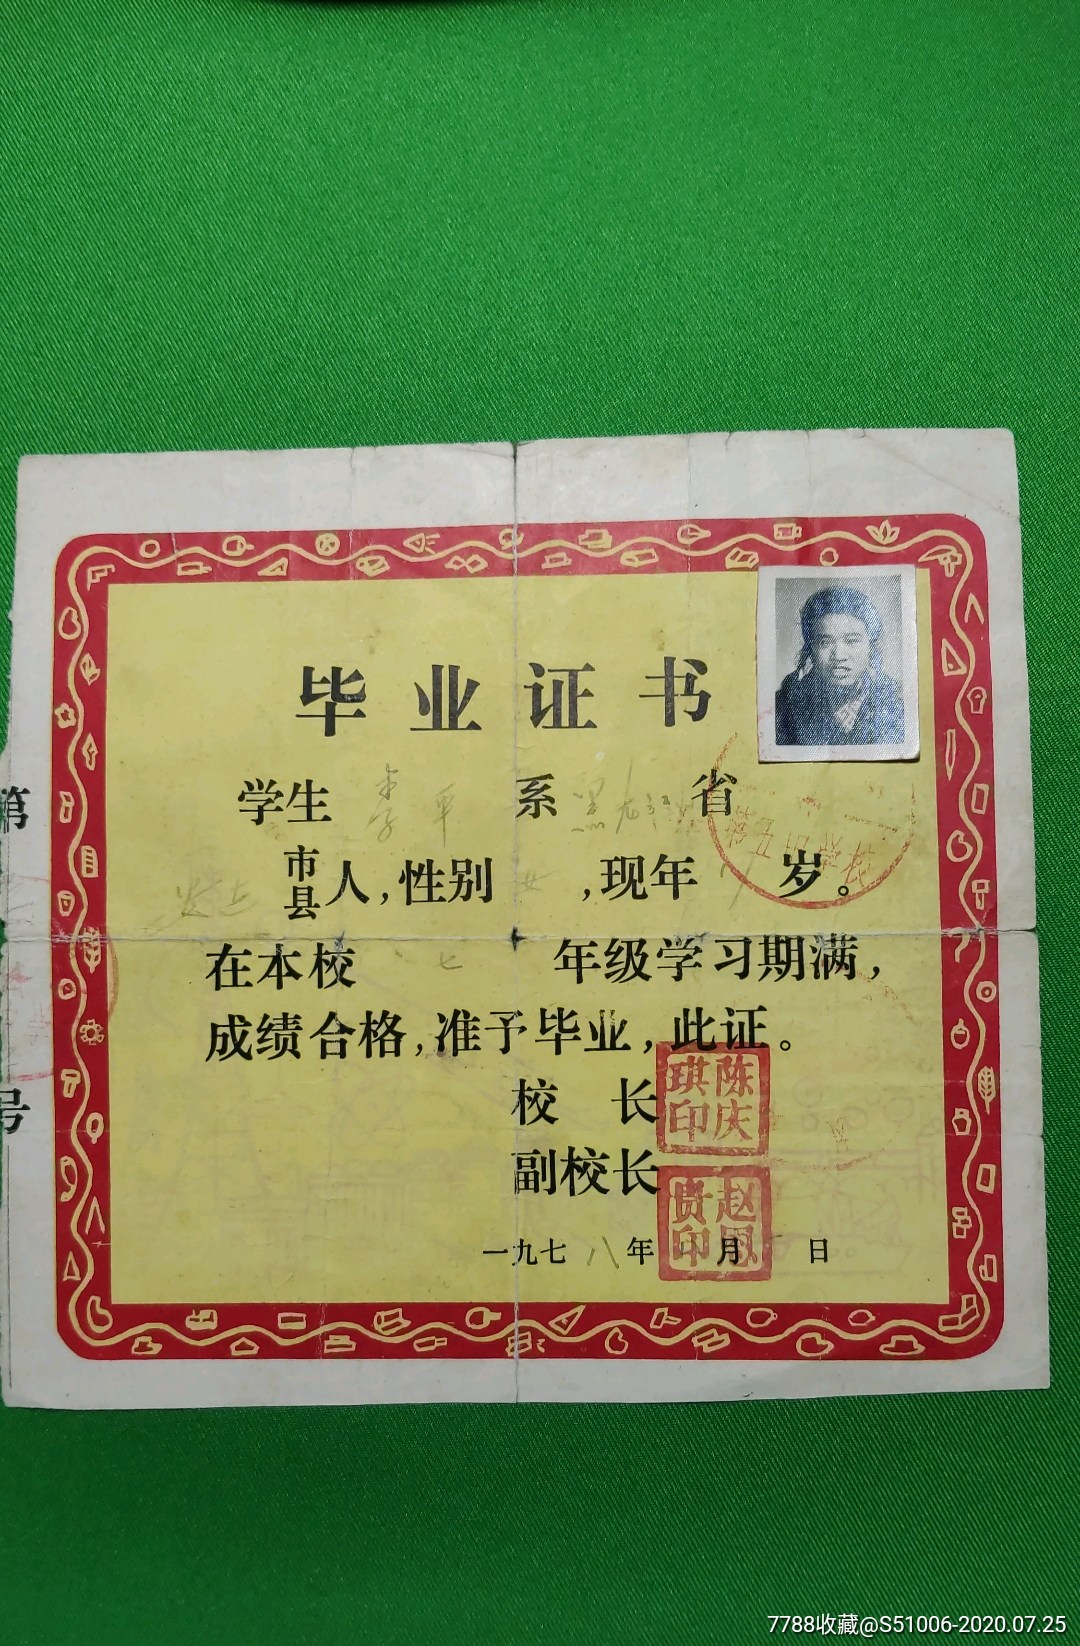 毕业证书
学生 李平 系 黑龙江 省
市县人,性别 女 ,现年 岁。
在本校 七 年级学习期满,
成绩合格,准予毕业,此证。
校 长
陈庆琪印
副校长
赵恩贵印
一九七八年 月 日
第
号
7788收藏@S51006-2020.07.25